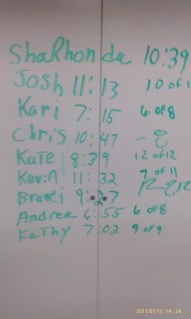 ShaRhonda 10:39
Josh 11:13 10 of 1
Kari 7:15 6 of 8
Chris 10:47
Kate 8:39 12 of 12
Kevin 11:32 7 of 11
Brandi 9:37
Andrea 6:55 6 of 8
Kathy 7:02 9 of 9
2011/01/15 14:24